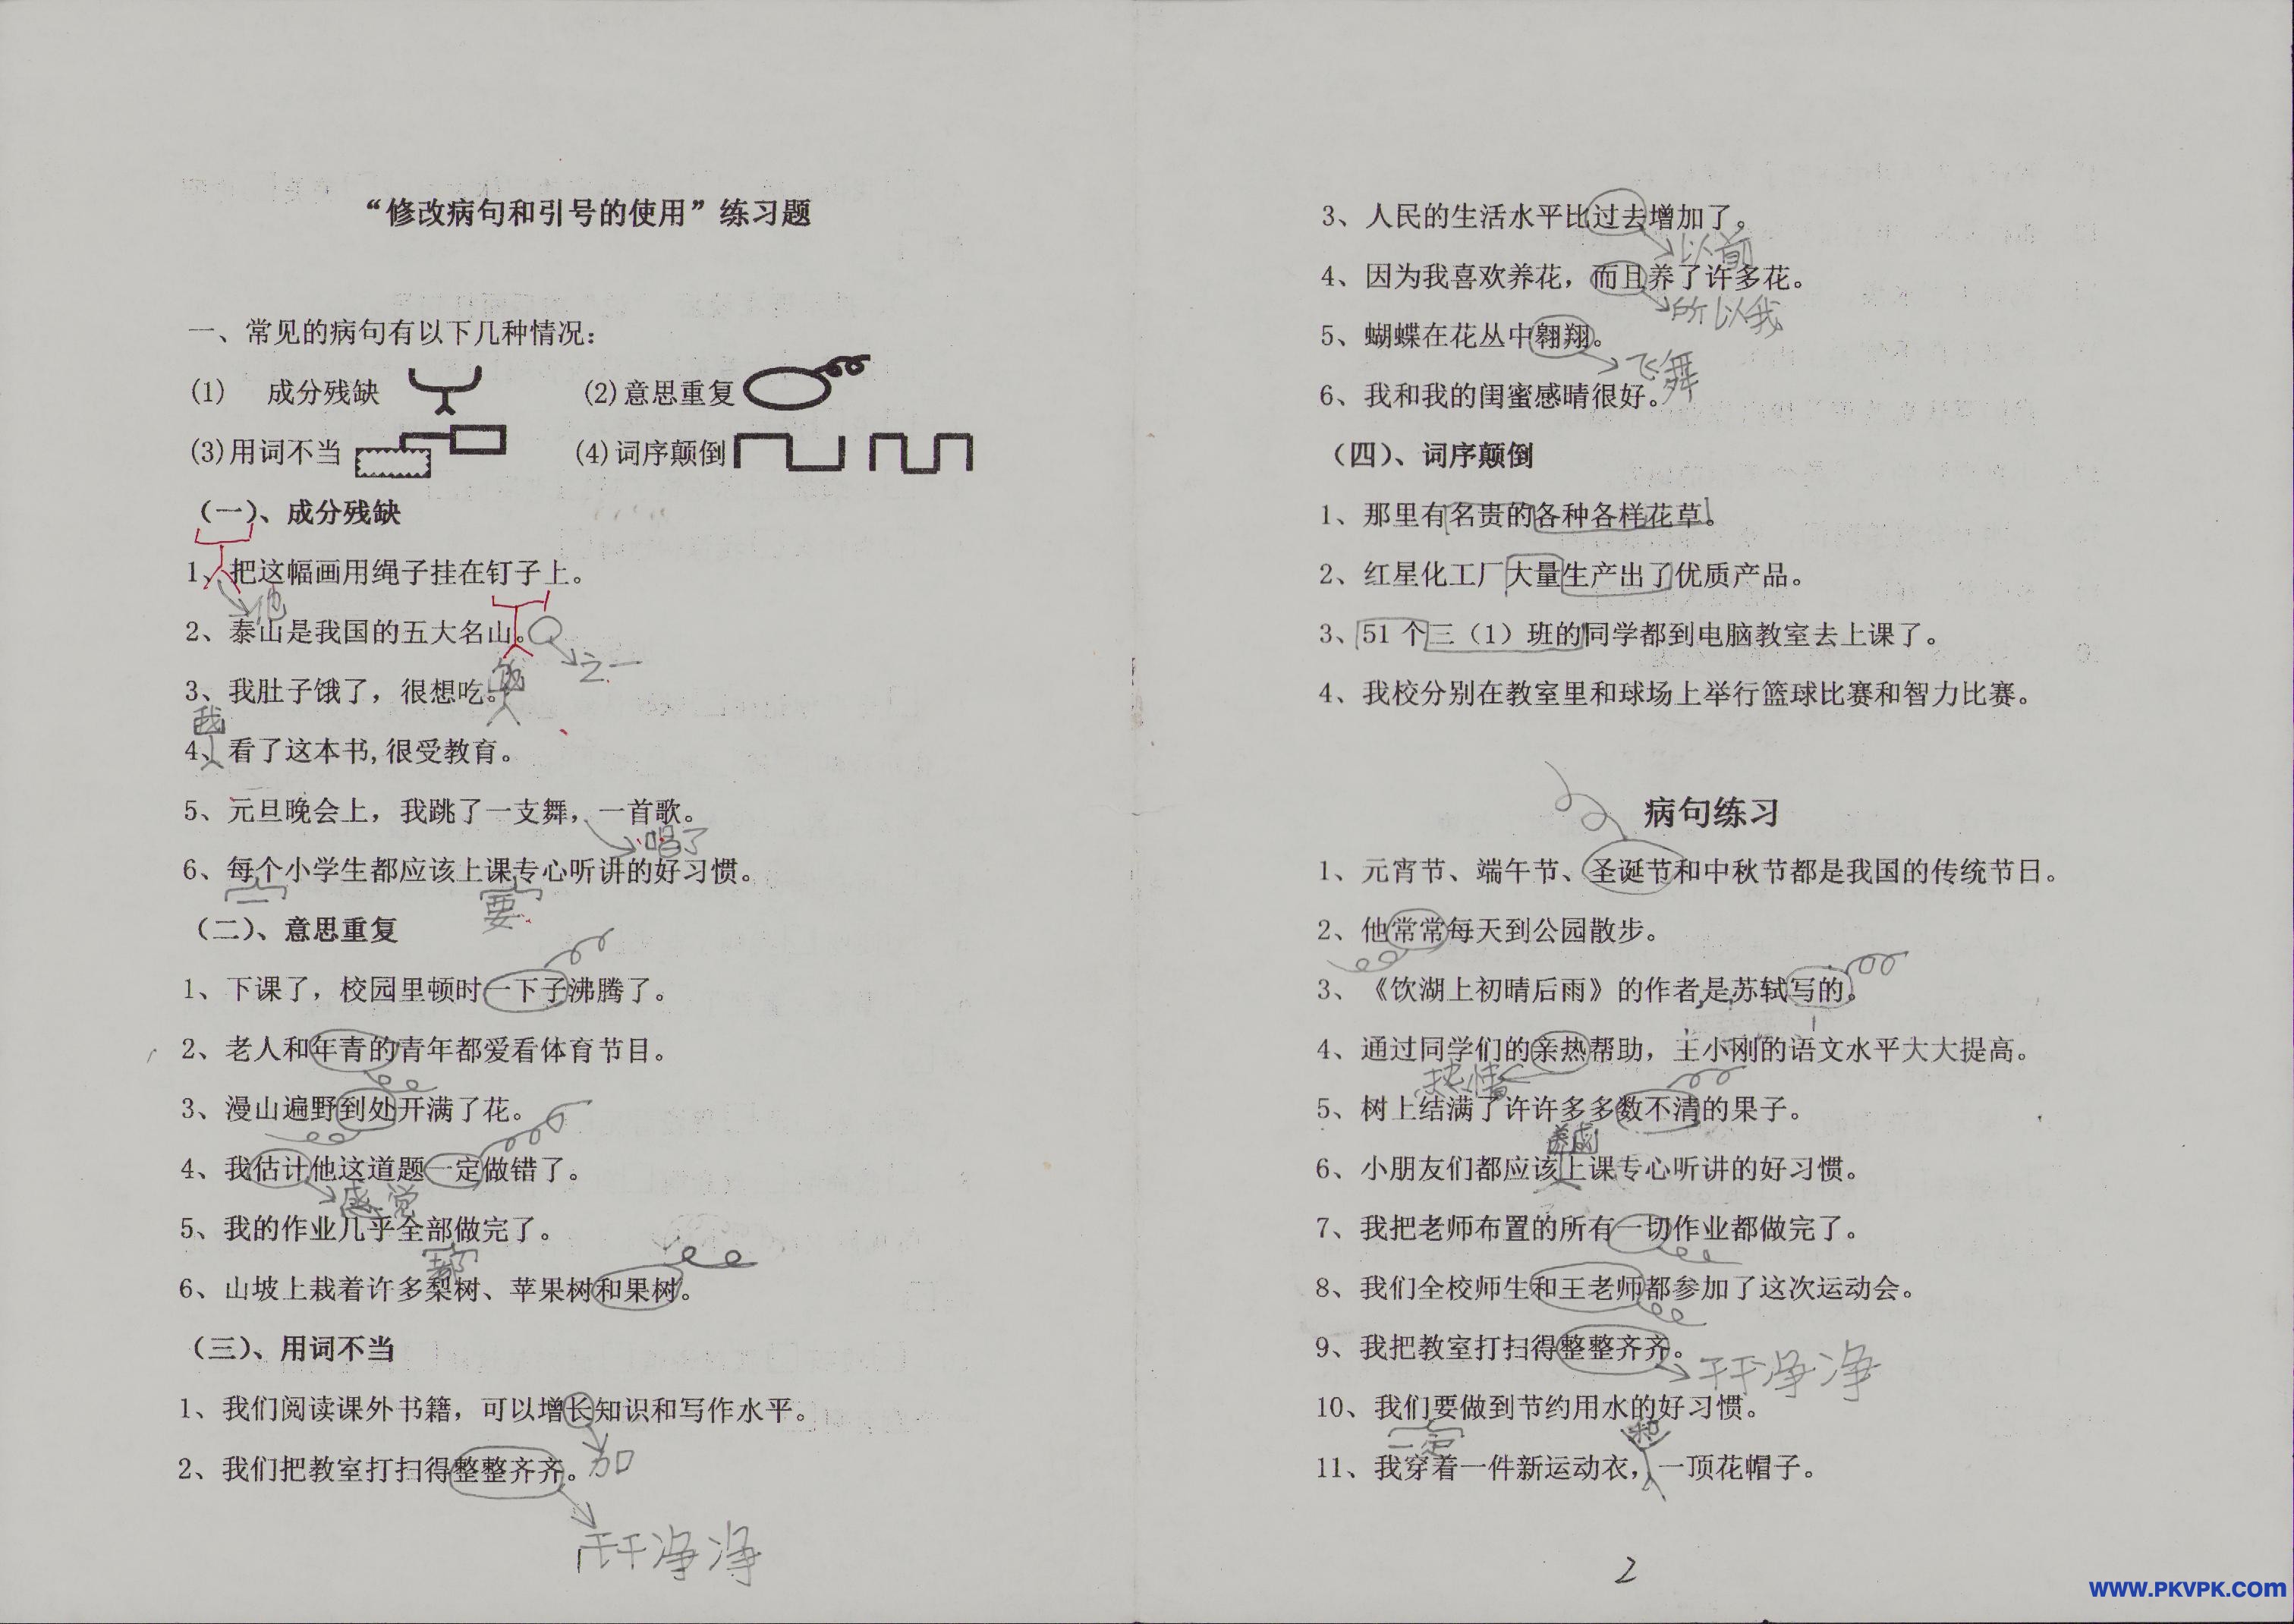 “修改病句和引号的使用”练习题
一、常见的病句有以下几种情况:
(1) 成分残缺 (2)意思重复
(3)用词不当 (4)词序颠倒
（一）、成分残缺
1、把这幅画用绳子挂在钉子上。
他
2、泰山是我国的五大名山。
之一
3、我肚子饿了，很想吃。
饭
我
4、看了这本书,很受教育。
5、元旦晚会上，我跳了一支舞，一首歌。
唱了
6、每个小学生都应该上课专心听讲的好习惯。
要
（二）、意思重复
1、下课了，校园里顿时一下子沸腾了。
2、老人和年青的青年都爱看体育节目。
3、漫山遍野到处开满了花。
4、我估计他这道题一定做错了。
感觉
5、我的作业几乎全部做完了。
都
6、山坡上栽着许多梨树、苹果树和果树。
（三）、用词不当
1、我们阅读课外书籍，可以增长知识和写作水平。
加
2、我们把教室打扫得整整齐齐。
干干净净
3、人民的生活水平比过去增加了。
以前
4、因为我喜欢养花，而且养了许多花。
所以我
5、蝴蝶在花丛中翱翔。
飞舞
6、我和我的闺蜜感晴很好。
（四）、词序颠倒
1、那里有名贵的各种各样花草。
2、红星化工厂大量生产出了优质产品。
3、51 个三（1）班的同学都到电脑教室去上课了。
4、我校分别在教室里和球场上举行篮球比赛和智力比赛。
病句练习
1、元宵节、端午节、圣诞节和中秋节都是我国的传统节日。
2、他常常每天到公园散步。
3、《饮湖上初晴后雨》的作者是苏轼写的。
4、通过同学们的亲热帮助，王小刚的语文水平大大提高。
热情
5、树上结满了许许多多数不清的果子。
养成
6、小朋友们都应该上课专心听讲的好习惯。
7、我把老师布置的所有一切作业都做完了。
8、我们全校师生和王老师都参加了这次运动会。
9、我把教室打扫得整整齐齐。
干干净净
10、我们要做到节约用水的好习惯。
一定
和
11、我穿着一件新运动衣，一顶花帽子。
2
www.PKVPK.com